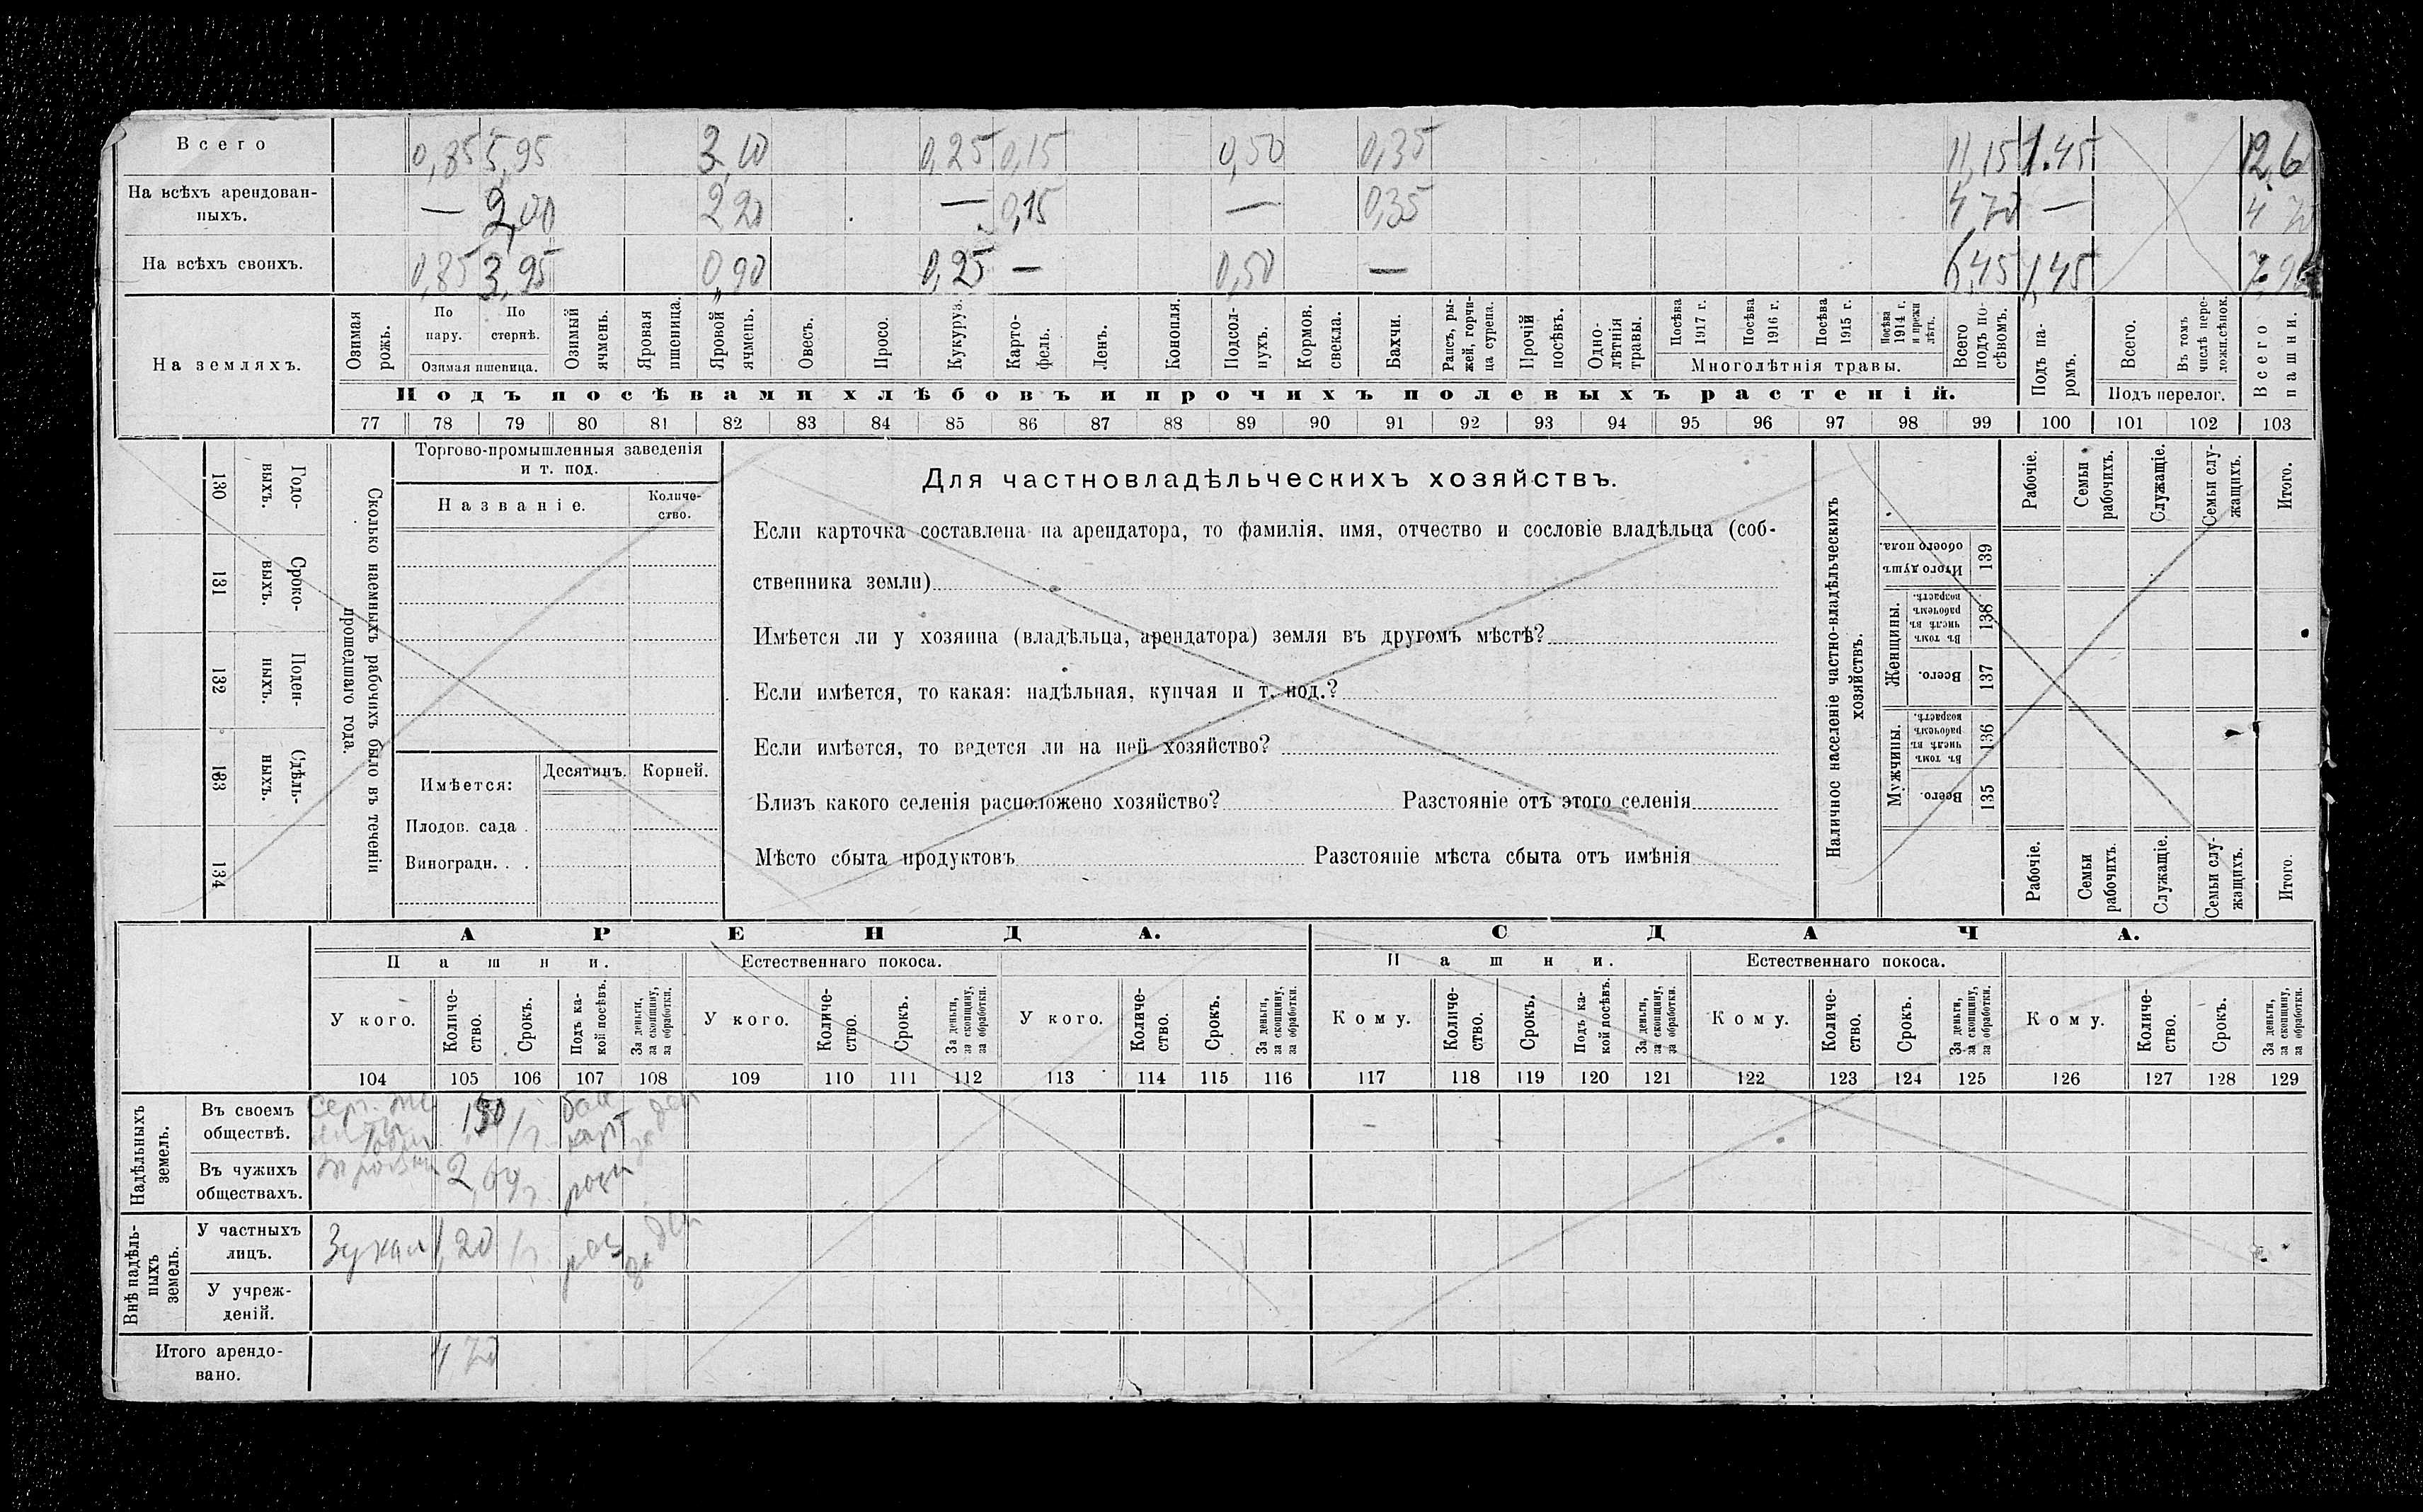 Всего 0,85 5,95 3,10 0,25 0,15 0,50 0,35 11,15 1.45 12,6
На всѣхъ арендован-
ныхъ. — 2,00 2 20 — 0,15 — 0,35 4,70 — 4 70
На всѣхъ своихъ. 0,85 3,95 0,90 0,25 — 0,50 — 6,45 1,45
На земляхъ.
Озимая рожь.
По пару.
По стернѣ.
Озимая пшеница.
Озимый ячмень.
Яровая пшеница.
Яровой ячмень.
Овесъ.
Просо.
Кукуруз.
Карто-
фель.
Ленъ.
Конопля.
Подсол-
нухъ.
Кормов. свекла.
Бахчи.
Рапсъ, ры-
жей, горчи-
ца сурепа.
Прочій посѣвъ.
Одно-
лѣтнія травы.
Посѣва 1917 г.
Посѣва 1916 г.
Посѣва 1915 г.
Посѣва 1914 г. и прежн лѣтъ.
Многолѣтнія травы.
Всего подъ по-
сѣвомъ.
Подъ па-
ромъ.
Всего.
Въ томъ числѣ пере-
ложн.сѣнок.
Подъ перелог.
Всего пашни.
Подъ посѣвами хлѣбовъ и прочихъ полевыхъ растеній.
77 78 79 80 81 82 83 84 85 86 87 88 89 90 91 92 93 94 95 96 97 98 99 100 101 102 103
130 Годо-
выхъ.
131 Сроко-
выхъ.
132 Поден-
ныхъ.
133 Сдѣль-
ныхъ.
134
Сколько наемныхъ рабочихъ было въ теченіи
прошедшаго года.
Торгово-промышленныя заведенія
и т. под.
Названіе.
Количе-
ство.
Имѣется:
Десятинъ.
Корней.
Плодов. сада .
Виноградн. . .
Для частновладѣльческихъ хозяйствъ.
Если карточка составлена на арендатора, то фамилія, имя, отчество и сословіе владѣльца (соб-
ственника земли)
Имѣется ли у хозяина (владѣльца, арендатора) земля въ другомъ мѣстѣ?
Если имѣется, то какая: надѣльная, купчая и т. под.?
Если имѣется, то ведется ли на ней хозяйство?
Близъ какого селенія расположено хозяйство? Разстояніе отъ этого селенія
Мѣсто сбыта продуктовъ Разстояніе мѣста сбыта отъ имѣнія
Наличное населеніе частно-владѣльческихъ
хозяйствъ.
Рабочіе.
Семьи рабочихъ.
Служащіе.
Семьи слу-
жащихъ.
Итого.
Итого душъ обоего пола.
139
Женщины.
Въ томъ числѣ въ рабочемъ возрастѣ.
138
Всего.
137
Мужчины.
Въ томъ числѣ въ рабочемъ возрастѣ.
136
Всего.
135
Рабочіе.
Семьи рабочихъ.
Служащіе.
Семьи слу-
жащихъ.
Итого.
АРЕНДА. СДАЧА.
Пашни. Естественнаго покоса. Пашни. Естественнаго покоса.
У кого.
Количе-
ство.
Срокъ.
Подъ ка-
кой посѣвъ.
За деньги, за скопщину, за обработки.
У кого.
Количе-
ство.
Срокъ.
За деньги, за скопщину, за обработки.
У кого.
Количе-
ство.
Срокъ.
За деньги, за скопщину, за обработки.
Кому.
Количе-
ство.
Срокъ.
Подъ ка-
кой посѣвъ.
За деньги, за скопщину, за обработки.
Кому.
Количе-
ство.
Срокъ.
За деньги, за скопщину, за обработки.
Кому.
Количе-
ство.
Срокъ.
За деньги, за скопщину, за обработки.
104 105 106 107 108 109 110 111 112 113 114 115 116 117 118 119 120 121 122 123 124 125 126 127 128 129
Надѣльныхъ
земель.
Въ своемъ
обществѣ. 150 карт
Въ чужихъ
обществахъ.
Внѣ надѣль-
ныхъ
земель.
У частныхъ
лицъ. 1,20
У учреж-
деній.
Итого арендо-
вано. 4 70